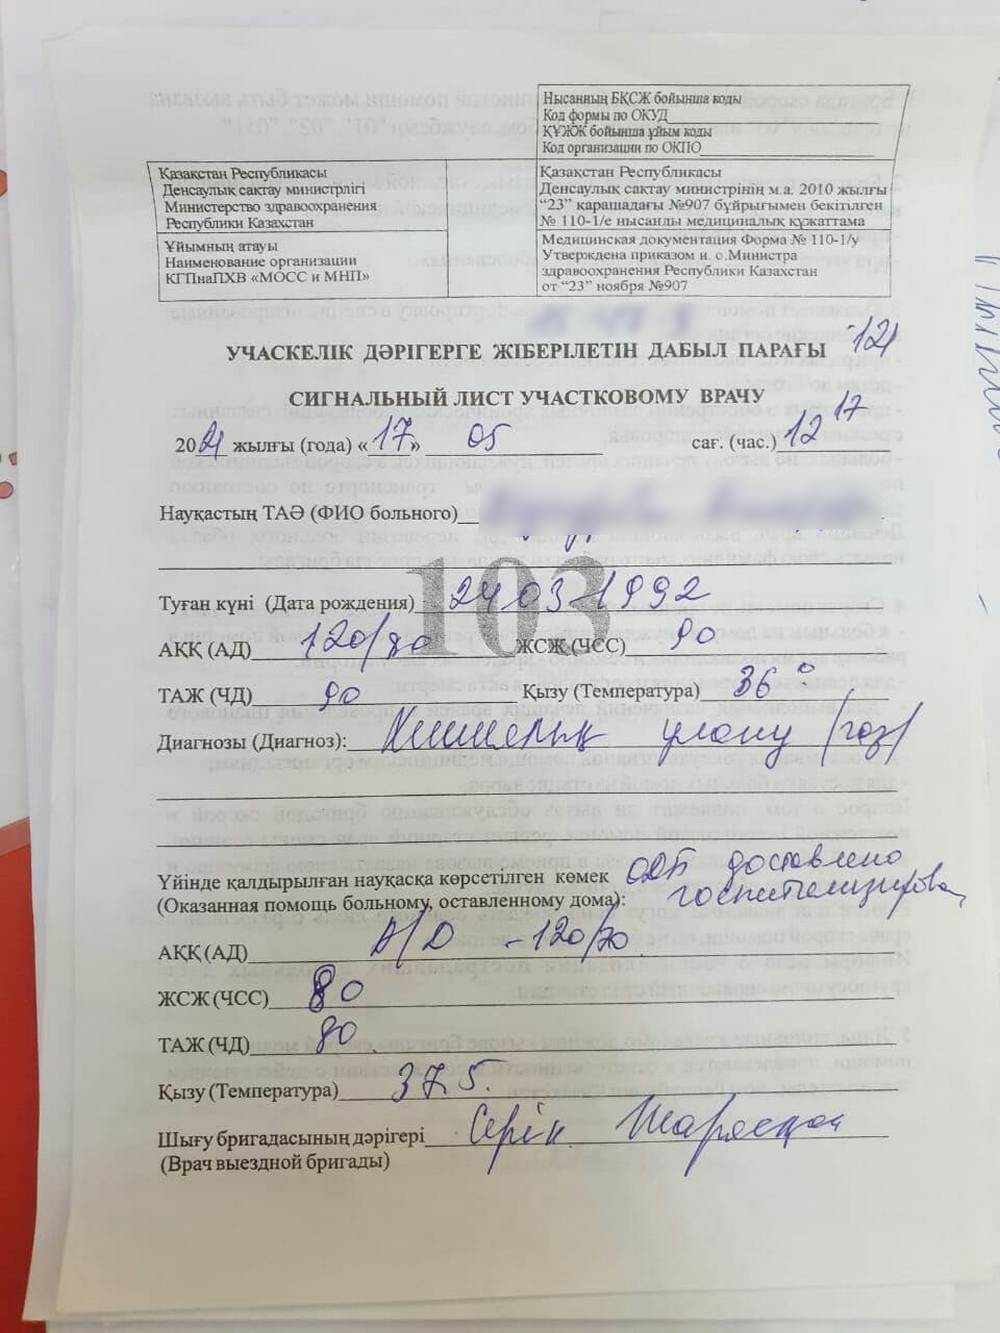 Нысанның БҚСЖ бойынша коды
Код формы по ОКУД
ҚҰЖЖ бойынша ұйым коды
Код организации по ОКПО
Қазақстан Республикасы
Денсаулық сақтау министрлігі
Министерство здравоохранения
Республики Казахстан
Қазақстан Республикасы
Денсаулық сақтау министрінің м.а. 2010 жылғы
“23” қарашадағы №907 бұйрығымен бекітілген
№ 110-1/е нысанды медициналық құжаттама
Ұйымның атауы
Наименование организации
КГПнаПХВ «МОСС и МНП»
Медицинская документация Форма № 110-1/у
Утверждена приказом и. о.Министра
здравоохранения Республики Казахстан
от “23” ноября №907
121
УЧАСКЕЛІК ДӘРІГЕРГЕ ЖІБЕРІЛЕТІН ДАБЫЛ ПАРАҒЫ
СИГНАЛЬНЫЙ ЛИСТ УЧАСТКОВОМУ ВРАЧУ
2021 жылғы (года) «17» 05 сағ. (час.) 12 17
Науқастың ТАӘ (ФИО больного)
103
Туған күні (Дата рождения) 24 03 1992
АҚҚ (АД) 120/80 ЖСЖ (ЧСС) 90
ТАЖ (ЧД) 90 Қызу (Температура) 36°
Диагнозы (Диагноз): Химиялық улану (газ)
Үйінде қалдырылған науқасқа көрсетілген көмек доставлено
(Оказанная помощь больному, оставленному дома):
АҚҚ (АД) А/Д - 120/70
ЖСЖ (ЧСС) 80
ТАЖ (ЧД) 80
Қызу (Температура) 37 5.
Шығу бригадасының дәрігері Серік
(Врач выездной бригады)